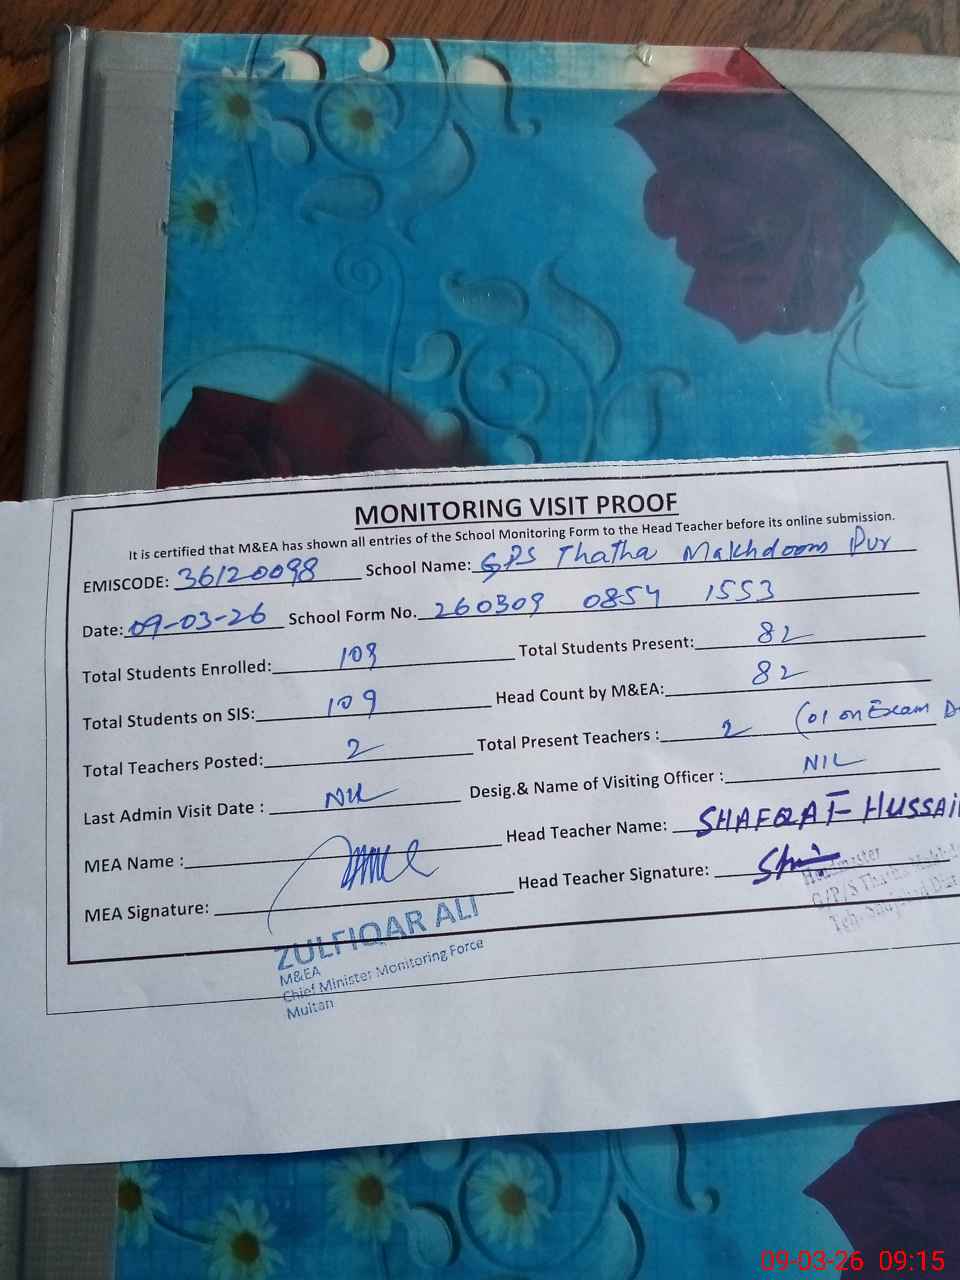 MONITORING VISIT PROOF
It is certified that M&EA has shown all entries of the School Monitoring Form to the Head Teacher before its online submission.
EMISCODE: 36120098 School Name: GPS Thatha Makhdoom Pur
Date: 09-03-26 School Form No. 260309 0854 1553
Total Students Enrolled: 109 Total Students Present: 82
Total Students on SIS: 109 Head Count by M&EA: 82
Total Teachers Posted: 2 Total Present Teachers : 2 (01 on Exam D
Last Admin Visit Date : Nil Desig.& Name of Visiting Officer : NIL
MEA Name : Head Teacher Name: SHAFQAT HUSSAI
MEA Signature: Head Teacher Signature:
Headmaster
G/P/S Thatha
Teh:
ZULFIQAR ALI
M&EA
Chief Minister Monitoring Force
Multan
09-03-26 09:15